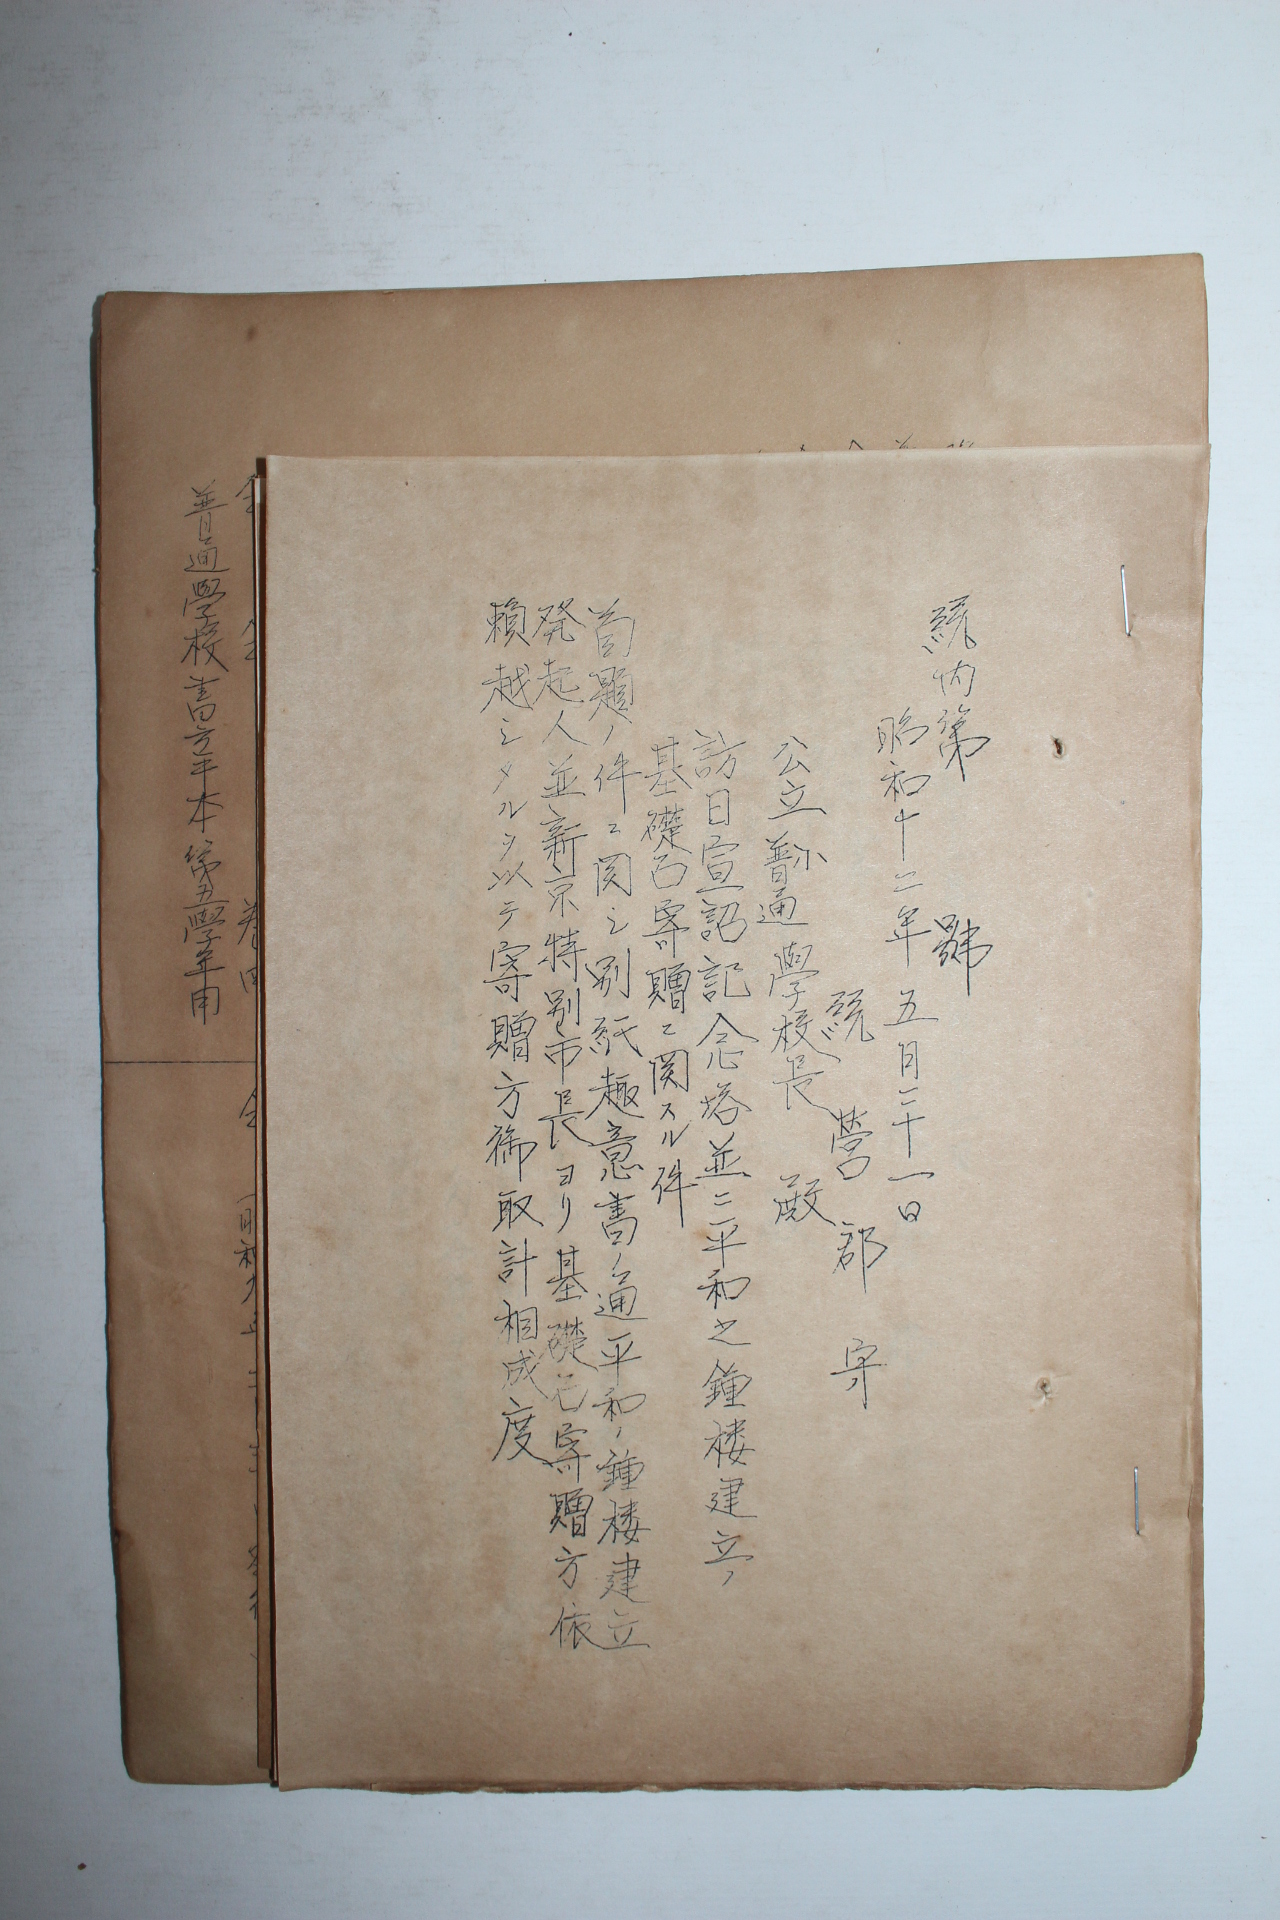 統内第　　　號
昭和十二年五月二十一日
統　營　郡　守
公立普通學校長　殿
小
訪日宣詔記念塔並ニ平和之鐘楼建立ノ
基礎石寄贈ニ関スル件
首題ノ件ニ関シ別紙趣意書ノ通平和ノ鐘楼建立
発起人並新京特別市長ヨリ基礎石寄贈方依
頼越シタルヲ以テ寄贈方御取計相成度
卷四
普通學校書方手本第五學年用